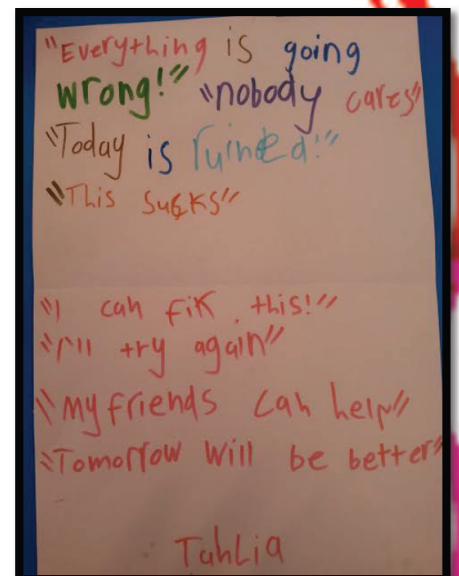 "Everything is going
wrong!" "nobody cares"
"Today is ruined!"
"This sucks"
"I can fix this!"
"I'll try again"
"My friends can help"
"Tomorrow will be better"
Tahlia